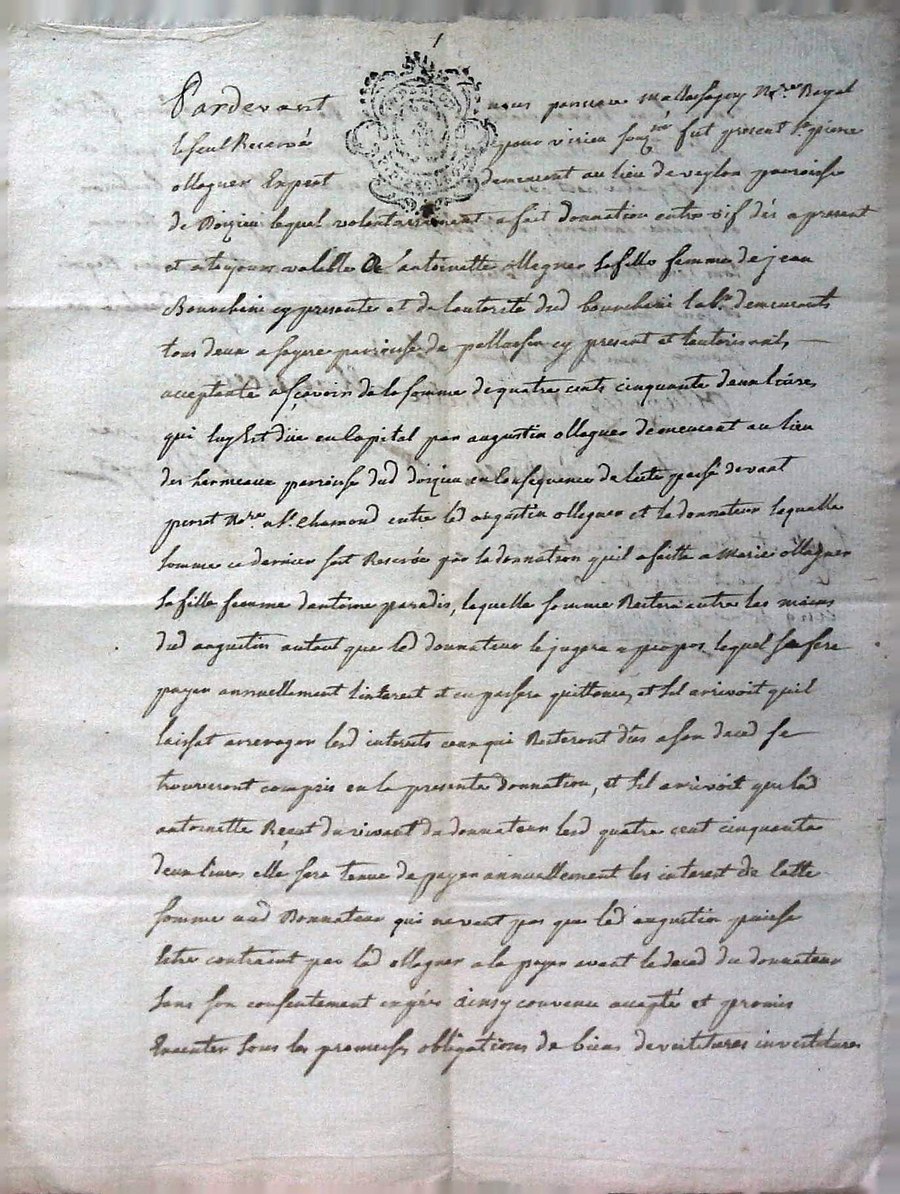 1
Pardevant nous Royal
le seul Reservé pour virieu fut present Sr pierre
ollagner Expert demeurant au lieu de veylon parroisse
de Doizieu lequel volontairement a fait donnation entre vif dès apresent
et atoujours valable a antoinette ollagner sa fille femme de jean
Bonnchini cy presente et de lautorité dud bonnchini demeurants
tous deux a parroisse de pellussin cy present et lautorisant,
acceptante asçavoir de la somme de quatre cents cinquante deux livres
qui luy Est düe en Capital par augustin ollagner demeurant au lieu
des hermeaux parroisse dud doizieu en Consequence de passé devant
perret Nore a St Chamond entre led augustin ollagner et le donnateur laquelle
somme ce dernier fait Reservée par la donnation quil afaitte a Marie ollagner
sa fille femme dantoine paradis, laquelle somme Restera entre les mains
dud augustin autant que led donnateur le jugera apropos lequel sen fera
payer annuellement linterest et en passera quittance, et sil arrivoit quil
laissat arrerager lesd interests ceux qui Resteront dûs a son deced se
trouveront compris en la presente donnation, et sil arrivoit que lad
antoinette Reçut du vivant du donnateur lesd quatre cent cinquante
deux livres elle sera tenue de payer annuellement les interest de latte
somme aud Donnateur qui ne veut pas que led augustin puisse
Estre contraint par lad ollagner a la payer avant le deced du donnateur
sans son consentement exprés ainsy convenu accepté et promis
Executer sous les promesses obligations de biens devestitures investitures